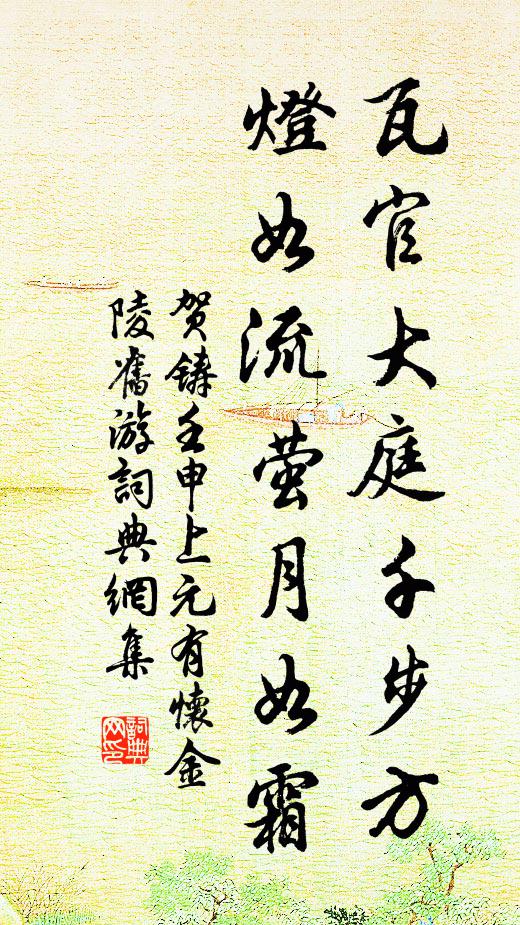 瓦官大庭千步方
燈如流萤月如霜
贺鑄壬申上元有懷金
陵舊游詞典網集
詞典
网印